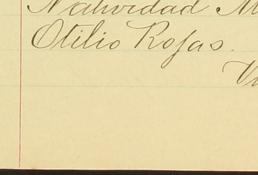 Natividad M
Otilio Rojas.